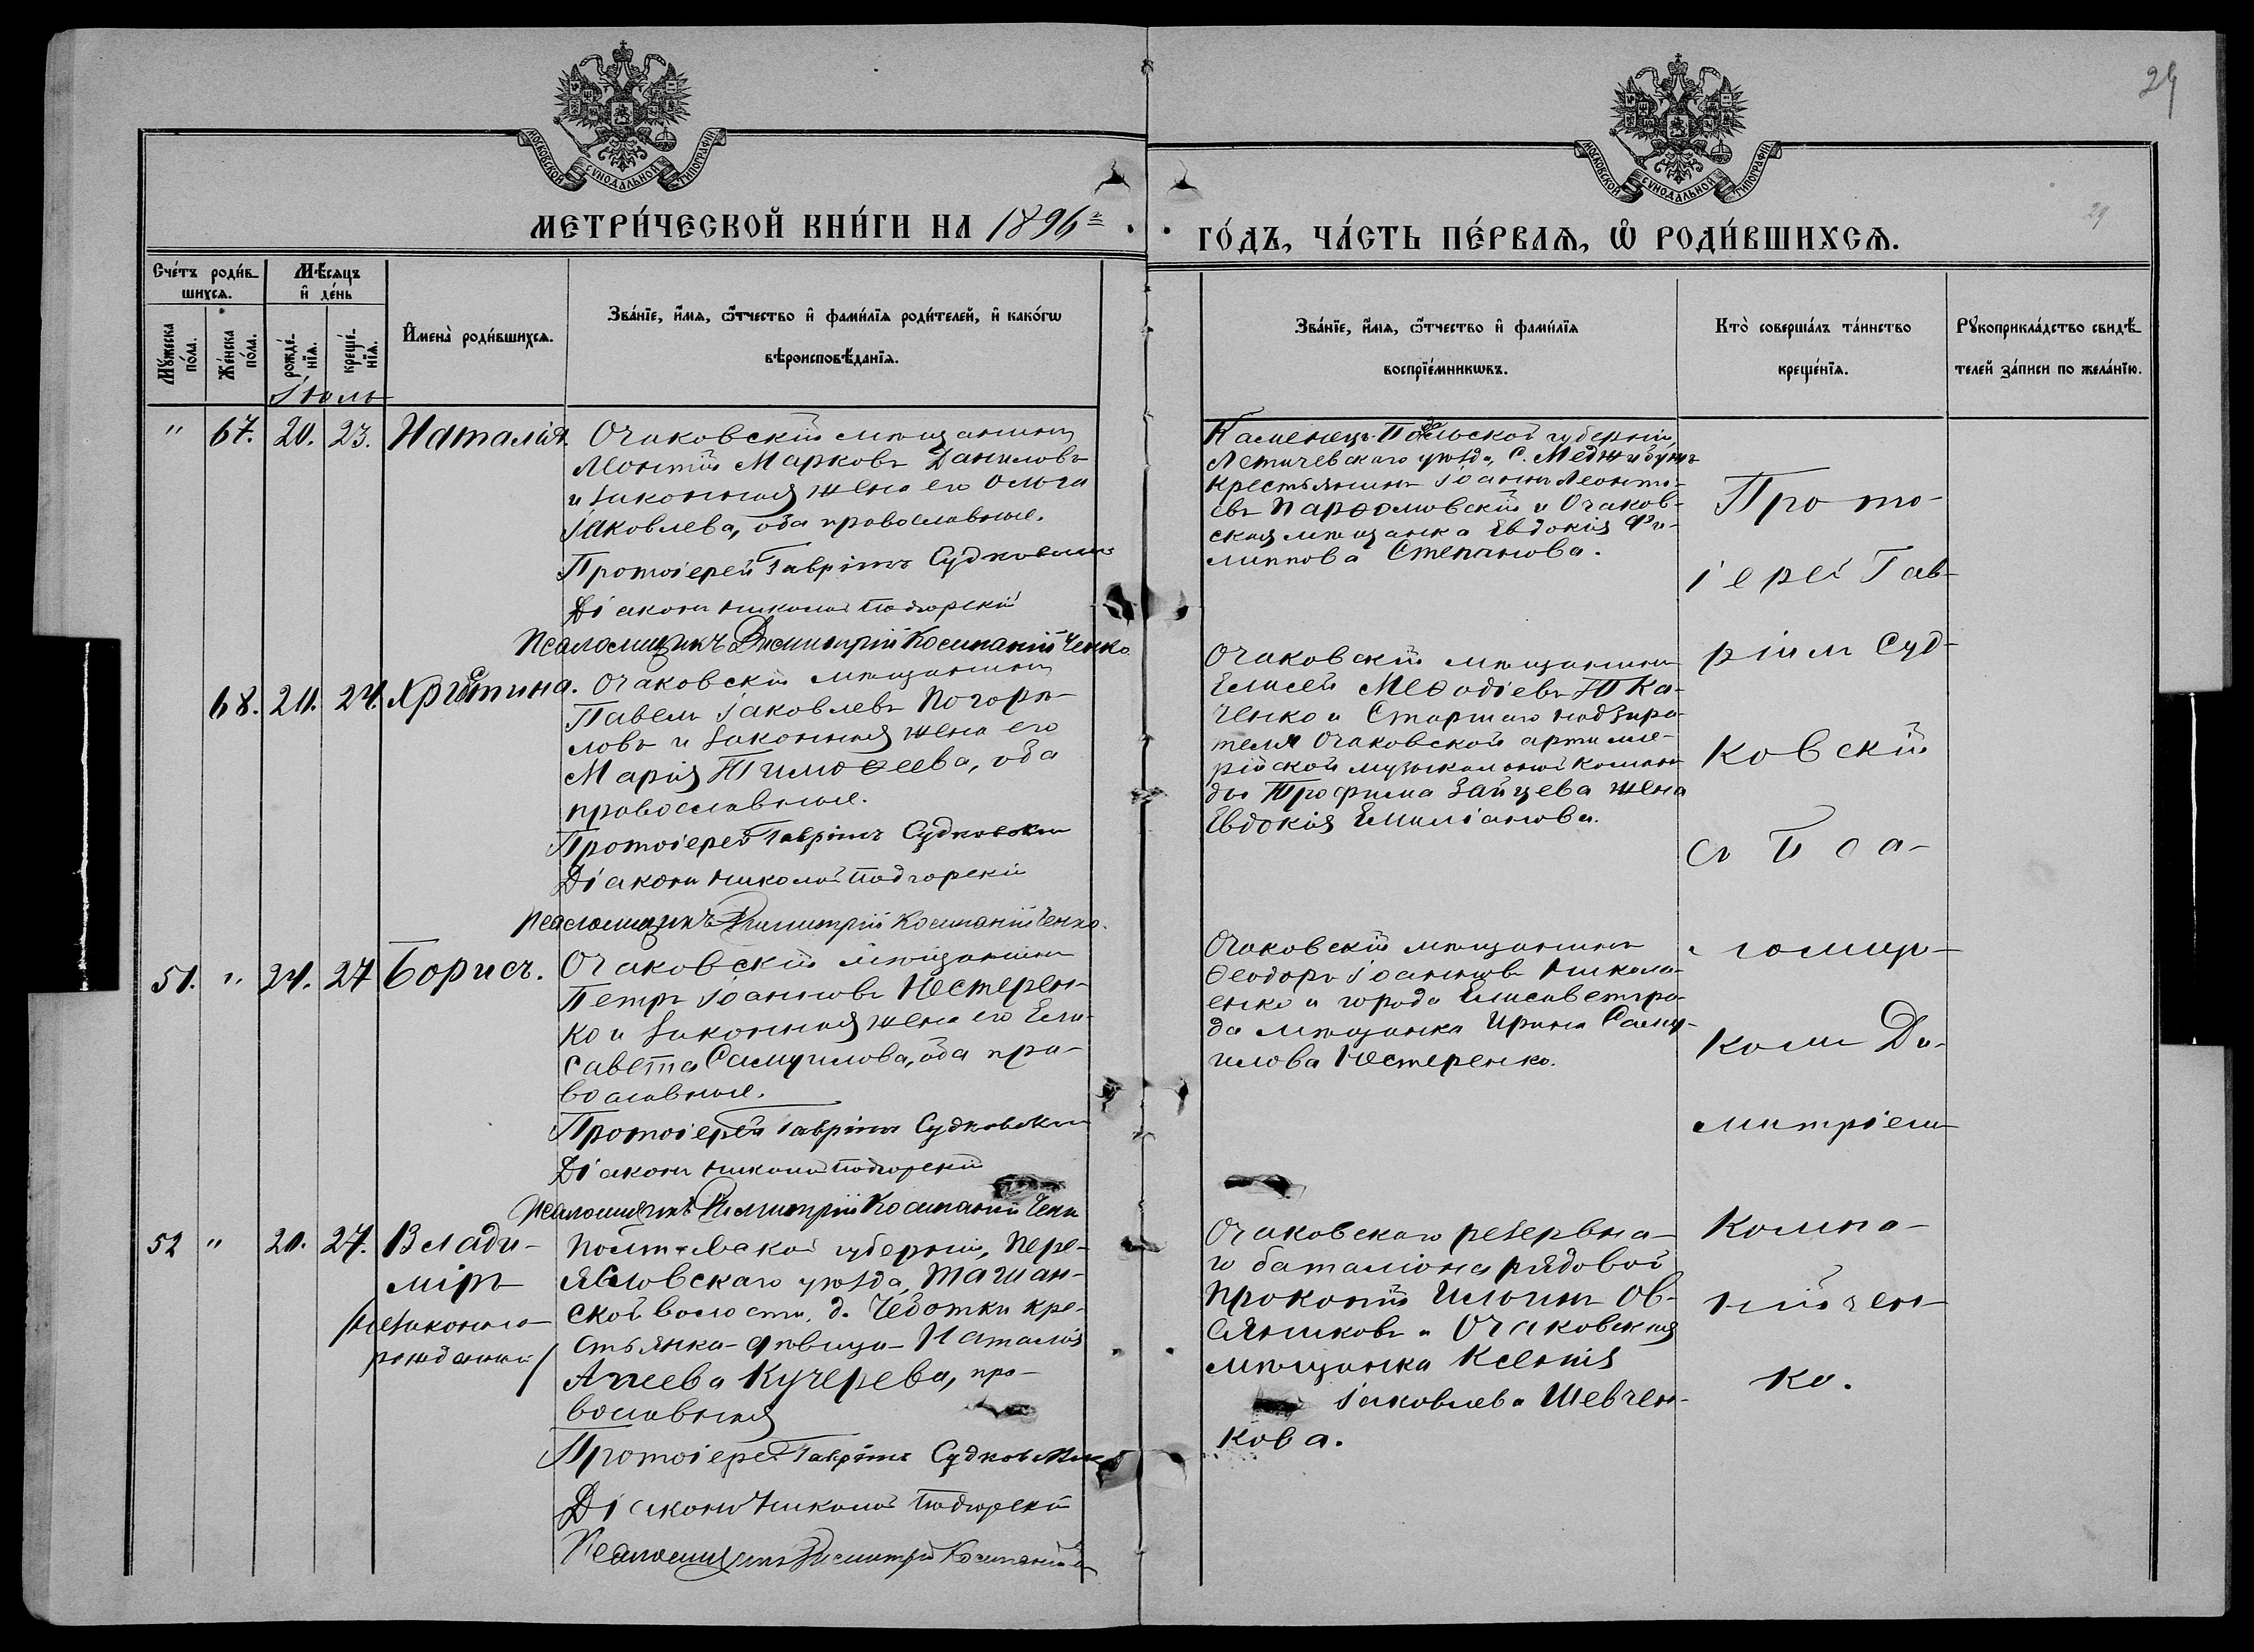 24
29
МОСКОВСКОЙ СѴНОДАЛЬНОЙ ТИПОГРАФІИ
МОСКОВСКОЙ СѴНОДАЛЬНОЙ ТИПОГРАФІИ
МЕТРИ́ЧЕСКОЙ КНИ́ГИ НА 1896 г.
ГО́ДЪ, ЧА́СТЬ ПЕ́РВАѦ, Ѡ РОДИ́ВШИХСѦ.
Счéтъ роди́в-
шихсѧ.
Мꙋ́жеска
пóла.
Жéнска
пóла.
Мѣ́сѧцъ
и҆ дéнь
рождé-
нїѧ.
крещé-
нїѧ.
И҆менà роди́вшихсѧ.
Звáнїе, и҆́мѧ, ѻ҆́тчество и҆ фами́лїѧ роди́телей, и҆ какóгѡ
вѣроисповѣ́данїѧ.
Звáнїе, и҆́мѧ, ѻ҆́тчество и҆ фами́лїѧ
воспрїéмникѡвъ.
Ктò совершáлъ тáинство
крещéнїѧ.
Рꙋкоприклáдство свидѣ́-
телей зáписи по желáнїю.
Іюль
" 67. 20. 23. Наталія.
Очаковскій мѣщанинъ
Леонтій Марковъ Даниловъ
и законная жена его Ольга
Іаковлева, оба православные.
Протоіерей Гавріилъ Судковскій
Діаконъ Николай Подгорскій
Псаломщикъ Димитрій Компанійченко
Каменецъ-Подольской губерніи,
Летичевскаго уѣзда, с. Меджибужъ
крестьянинъ Іоаннъ Леонть-
евъ Парѳомовскій и Очаков-
ская мѣщанка Евдокія Фи-
липпова Степанова.
68. 20. 24. Христина.
Очаковскій мѣщанинъ
Павелъ Іаковлевъ Погорѣ-
ловъ и законная жена его
Марія Тимоѳеева, оба
православные.
Протоіерей Гавріилъ Судковскій
Діаконъ Николай Подгорскій
Псаломщикъ Димитрій Компанійченко.
Очаковскій мѣщанинъ
Елисей Меѳодіевъ Тка-
ченко и Старшаго надзира-
теля Очаковской артилле-
рійской музыкальной коман-
ды Трофима Зайцева жена
Евдокія Емиліанова.
51. " 24. 27 Борисъ.
Очаковскій мѣщанинъ
Петръ Іоанновъ Нестерен-
ко и законная жена его Ели-
савета Самуилова, оба пра-
вославные.
Протоіерей Гавріилъ Судковскій
Діаконъ Николай Подгорскій
Псаломщикъ Димитрій Компанійченко
Очаковскій мѣщанинъ
Ѳеодоръ Іоанновъ Никола-
енко и города Елисаветгра-
да мѣщанка Ирина Саму-
илова Нестеренко.
52 " 20. 27. Влади-
міръ
/незаконно-
рожденный/
Полтавской губерніи, Пере-
яславскаго уѣзда, Ташан-
ской волости, д. Чеботки кре-
стьянка-дѣвица Наталія
Агѣева Кучерева, пра-
вославная
Протоіерей Гавріилъ Судковскій
Діаконъ Николай Подгорскій
Псаломщикъ Димитрій Компанійченко
Очаковскаго резервна-
го баталіона рядовой
Прокопій Ильинъ Ов-
сянниковъ и Очаковская
мѣщанка Ксенія
Іаковлева Шевчен-
кова.
Прото-
іерей Гав-
ріилъ Суд-
ковскій
съ Пса-
ломщи-
комъ Ди-
митріемъ
Компа-
нійчен-
ко.